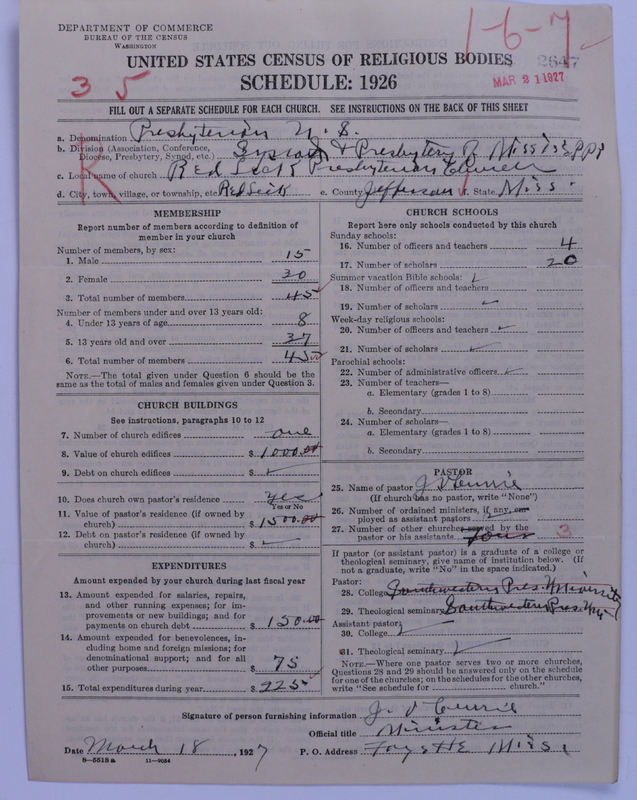 DEPARTMENT OF COMMERCE
BUREAU OF THE CENSUS
WASHINGTON
1-6-7
2647
MAR 21 1927
UNITED STATES CENSUS OF RELIGIOUS BODIES
SCHEDULE: 1926
3 5
FILL OUT A SEPARATE SCHEDULE FOR EACH CHURCH. SEE INSTRUCTIONS ON THE BACK OF THIS SHEET
K
a. Denomination Presbyterian U. S.
b. Division (Association, Conference, Diocese, Presbytery, Synod, etc.) Synod & Presbytery of Mississippi
c. Local name of church Red Lick Presbyterian Church
d. City, town, village, or township, etc. Red Lick e. County Jefferson f. State Miss.
MEMBERSHIP
Report number of members according to definition of
member in your church
Number of members, by sex:
1. Male 15
2. Female 30
3. Total number of members 45
Number of members under and over 13 years old:
4. Under 13 years of age 8
5. 13 years old and over 37
6. Total number of members 45
NOTE.—The total given under Question 6 should be
same as the total of males and females given under Question 3.
CHURCH BUILDINGS
See instructions, paragraphs 10 to 12
7. Number of church edifices one
8. Value of church edifices $ 1000.00
9. Debt on church edifices $
10. Does church own pastor's residence yes
Yes or No
11. Value of pastor's residence (if owned by
church) $ 1500.00
12. Debt on pastor's residence (if owned by
church) $
EXPENDITURES
Amount expended by your church during last fiscal year
13. Amount expended for salaries, repairs,
and other running expenses; for im-
provements or new buildings; and for
payments on church debt $ 150.00
14. Amount expended for benevolences, in-
cluding home and foreign missions; for
denominational support; and for all
other purposes $ 75
15. Total expenditures during year $ 225
CHURCH SCHOOLS
Report here only schools conducted by this church
Sunday schools:
16. Number of officers and teachers 4
17. Number of scholars 20
Summer vacation Bible schools:
18. Number of officers and teachers
19. Number of scholars
Week-day religious schools:
20. Number of officers and teachers
21. Number of scholars
Parochial schools:
22. Number of administrative officers
23. Number of teachers—
a. Elementary (grades 1 to 8)
b. Secondary
24. Number of scholars—
a. Elementary (grades 1 to 8)
b. Secondary
PASTOR
25. Name of pastor J V Currie
(If church has no pastor, write "None")
26. Number of ordained ministers, if any, em-
ployed as assistant pastors
27. Number of other churches served by the
pastor or his assistants four 3
If pastor (or assistant pastor) is a graduate of a college or
theological seminary, give name of institution below. (If
not a graduate, write "No" in the space indicated.)
Pastor:
28. College Southwestern Pres. University
29. Theological seminary Southwestern Pres.
Assistant pastor:
30. College
31. Theological seminary
NOTE.—Where one pastor serves two or more churches,
Questions 28 and 29 should be answered only on the schedule
for one of the churches; on the schedules for the other churches,
write "See schedule for church."
Signature of person furnishing information J. V Currie
Official title Minister
Date March 18, 1927 P. O. Address Fayette Miss.
8—5518a 11—9024